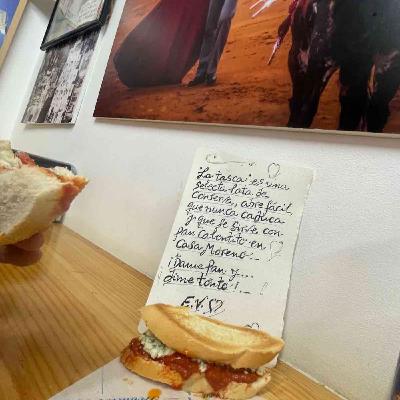 "La tasca" es una
selecta lata de
conserva, abre fácil,
que nunca caduca
y que se sirve con
pan calentito en
"Casa Moreno"...
¡Dame pan y...
dime tonto!...
E.V.S